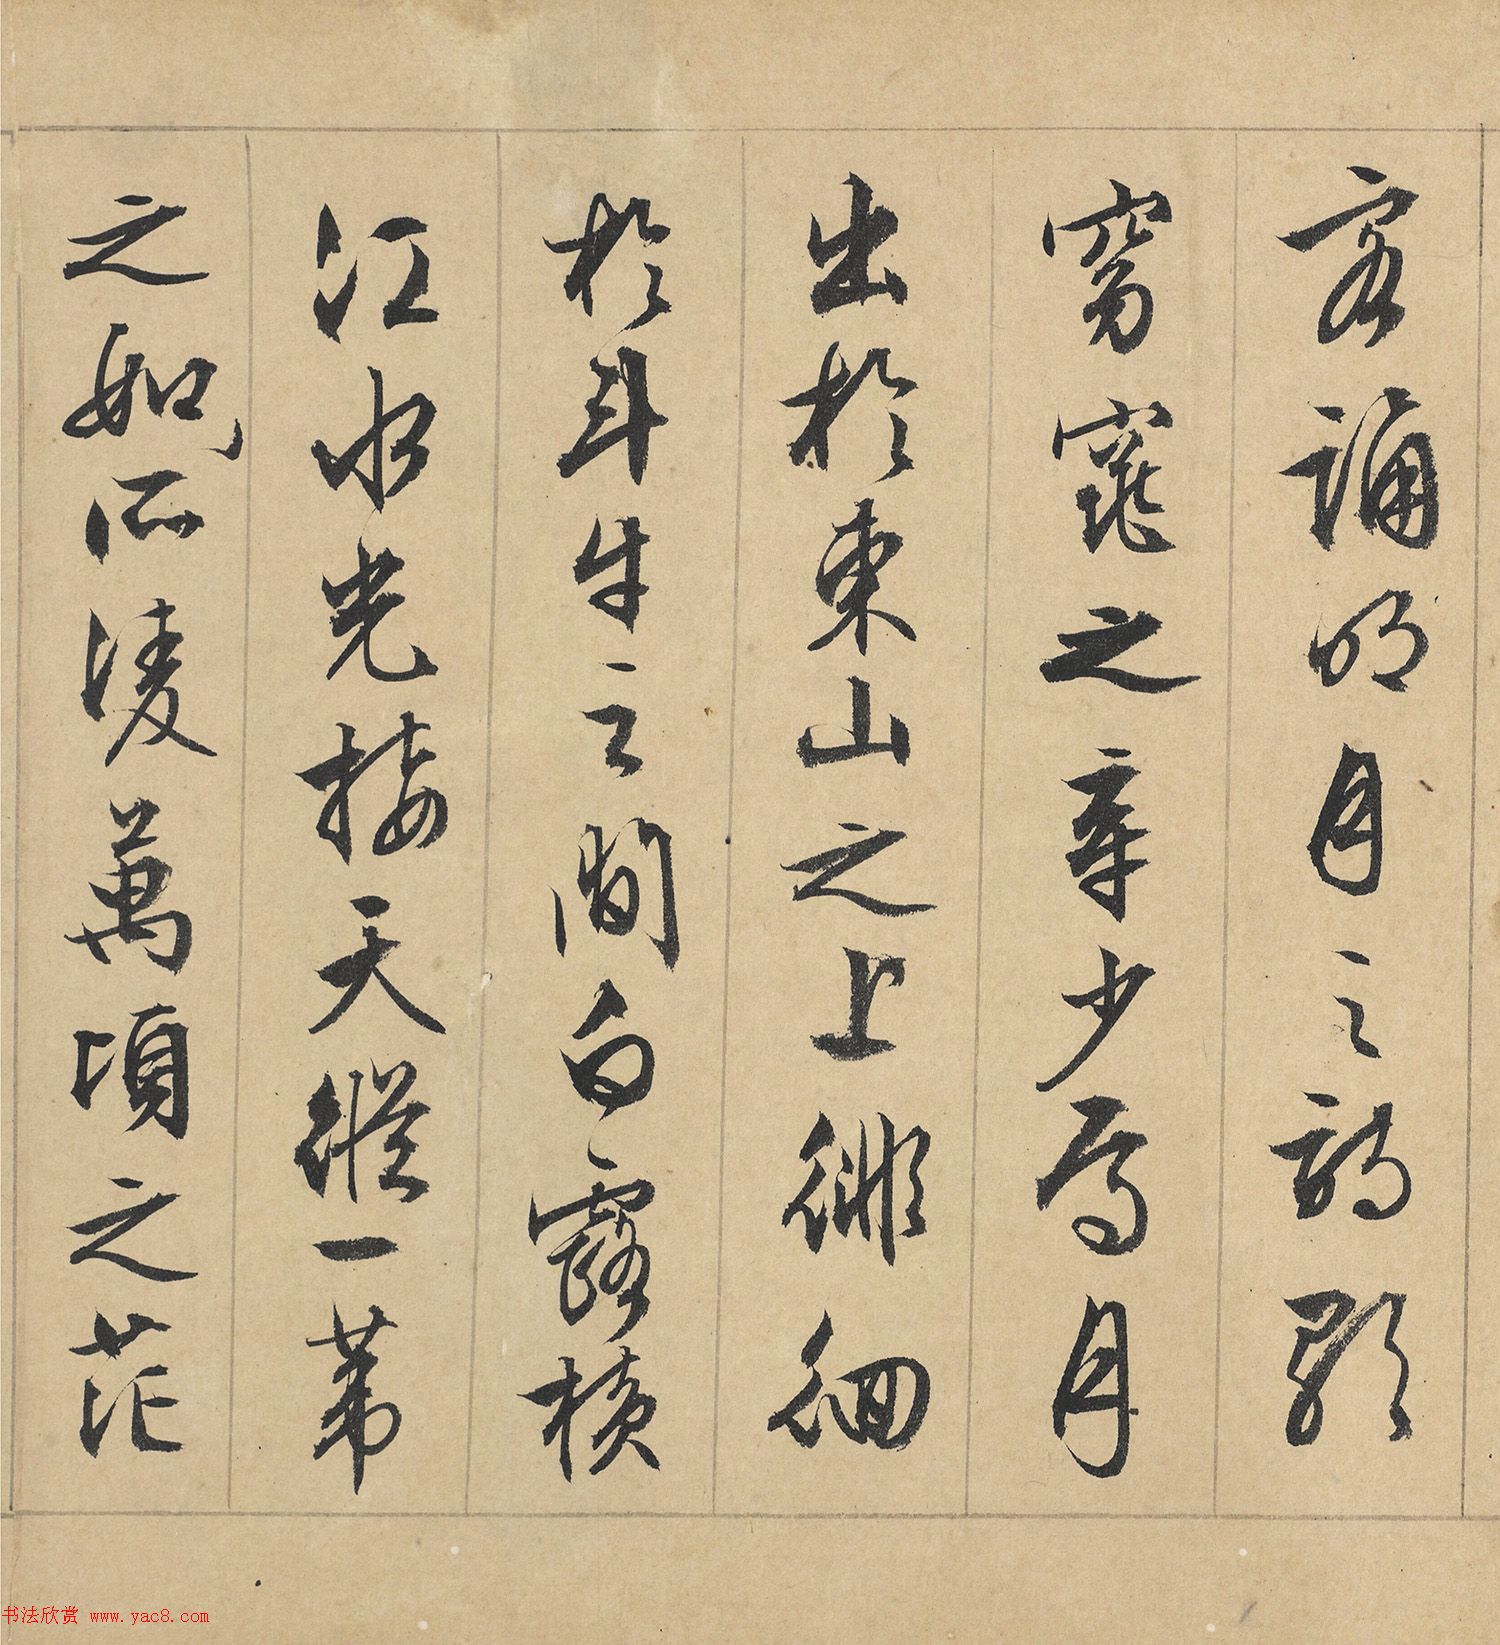 客誦明月之詩歌
窈窕之章少焉月
出於東山之上徘徊
於斗牛之間白露橫
江水光接天縱一葦
之如所凌萬頃之茫
书法欣赏 www.yac8.com